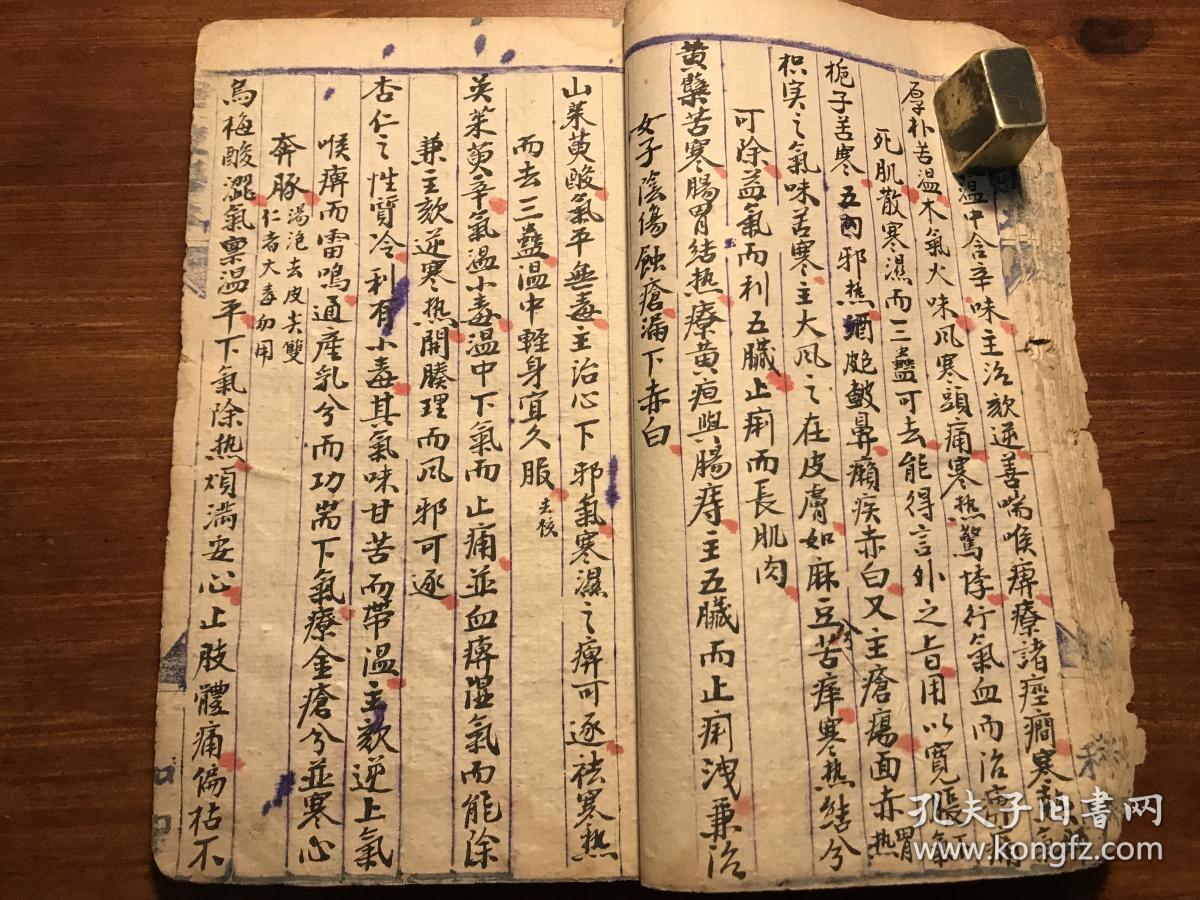 溫中合辛味主治欬逆善喘喉痺療諸痙癎寒熱
厚朴苦溫木氣火味風寒頭痛寒熱驚悸行氣血而治痺
死肌散寒濕而三蠱可去能得言外之旨用以寬長
梔子苦寒五內邪热酒皰皶鼻癩疾赤白又主瘡瘍面赤热胃
枳实之氣味苦寒主大风之在皮膚如麻豆苦痒寒热结兮
可除益氣而利五臟止痢而長肌肉
黄蘗苦寒腸胃结热療黄疸與腸痔主五臟而止痢洩兼治
女子陰傷蝕瘡漏下赤白
山茱萸酸氣平無毒主治心下邪氣寒濕之痹可逐祛寒热
而去三蠱溫中輕身宜久服去核
英茱萸辛氣溫小毒溫中下氣而止痛並血痹濕氣而能除
兼主欬逆寒热開腠理而风邪可逐
杏仁之性質冷利有小毒其氣味甘苦而帶溫主欬逆上氣
喉痹而雷鳴通產乳兮而功耑下氣療金瘡兮並寒心
奔豚湯泡去皮尖雙仁者大毒勿用
烏梅酸澀氣稟溫平下氣除热煩滿安心止肢體痛偏枯不
孔夫子旧書网
www.kongfz.com